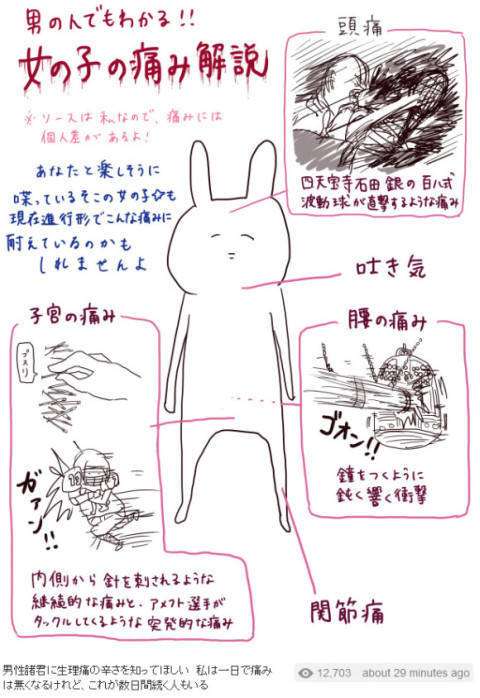 男の人でもわかる!!
女の子の痛み解説
※ソースは私なので、痛みには
個人差があるよ!
あなたと楽しそうに
喋っているそこの女の子も
現在進行形でこんな痛みに
耐えているのかも
しれませんよ
頭痛
四天宝寺石田銀の百八式
波動球が直撃するような痛み
吐き気
子宮の痛み
ブスリ
ガァン!!
内側から針を刺されるような
継続的な痛みと、アメフト選手が
タックルしてくるような突発的な痛み
腰の痛み
ゴオン!!
鐘をつくように
鈍く響く衝撃
関節痛
男性諸君に生理痛の辛さを知ってほしい 私は一日で痛み
は無くなるけれど、これが数日間続く人もいる
12,703 about 29 minutes ago